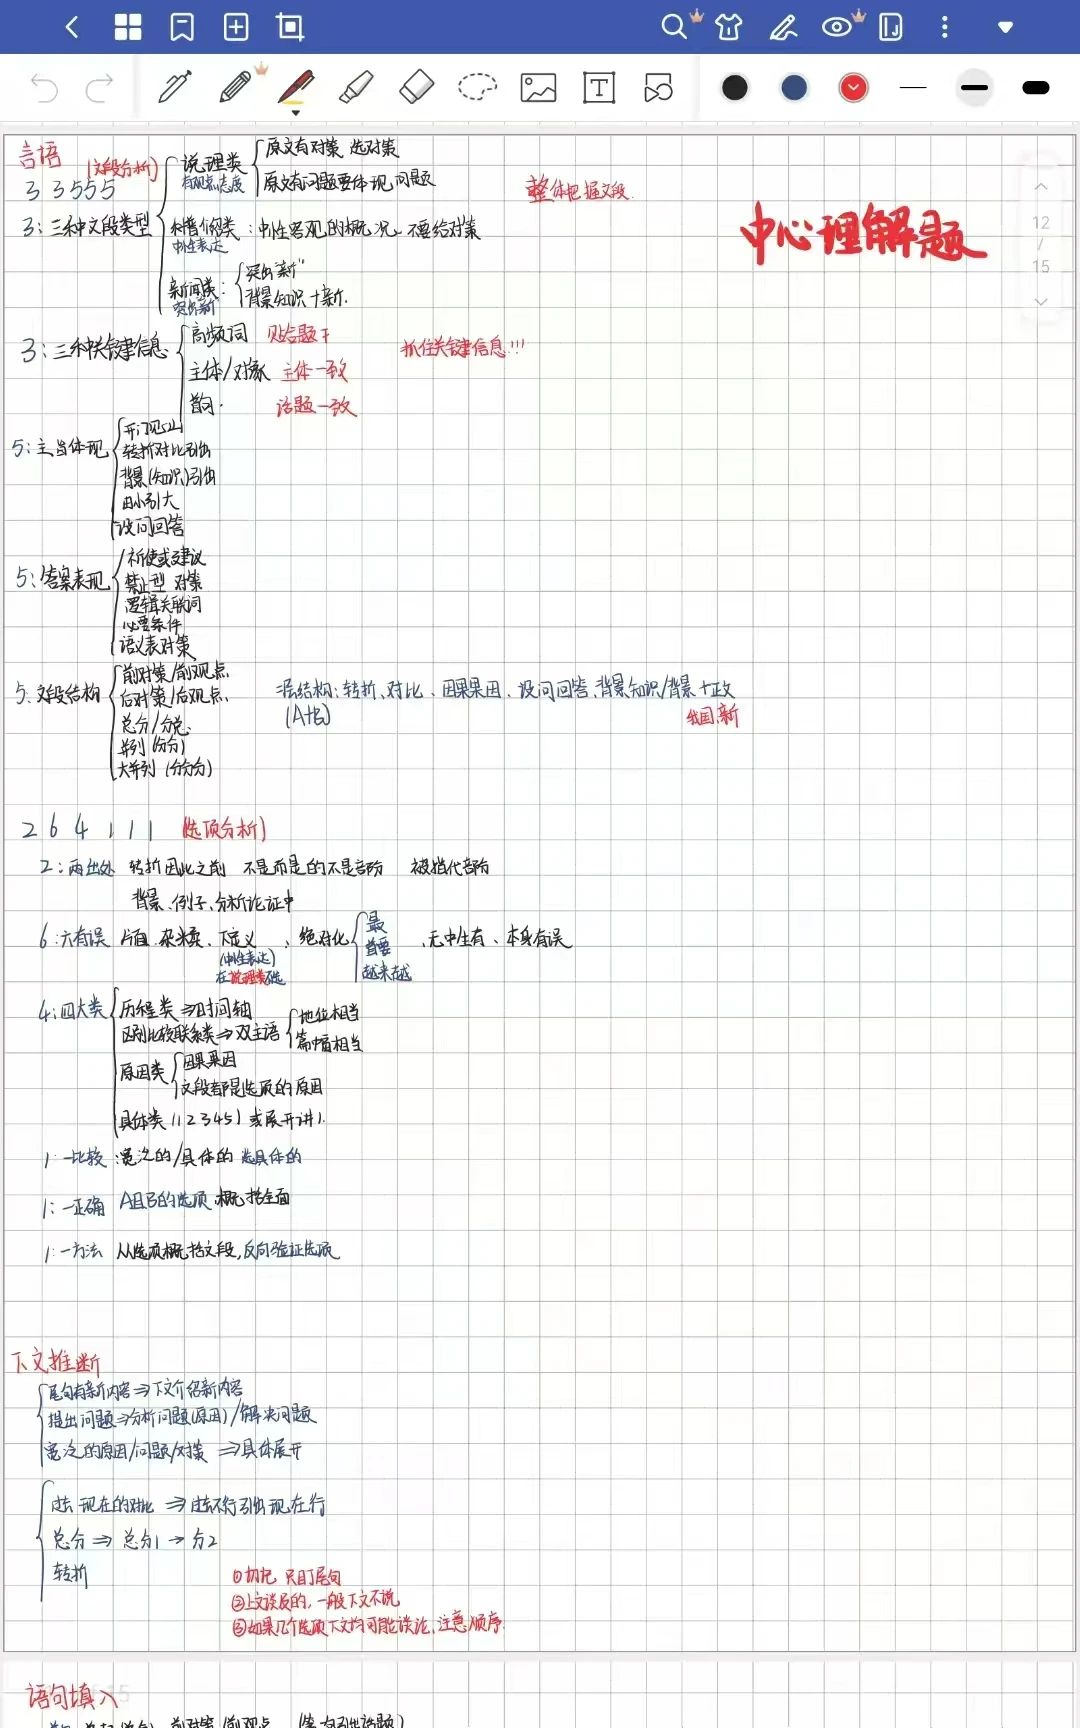 言语 (文段分析)
中心理解题
整体把握文段.
3 3 5 5 5
3: 三种文段类型
说理类
有观点态度
原文有对策 选对策
原文有问题要体现问题
科普介绍类: 中性客观的概况, 不要给对策
中性表达
新闻类:
突出新
突出"新"
背景知识+新.
12
/
15
3: 三种关键信息
高频词 贴合题干
主体/对象 主体一致
首句. 话题一致
抓住关键信息!!!
5: 主旨体现
开门见山
转折对比引出
背景(知识)引出
由小引大
设问回答
5: 答案表现
祈使或建议
禁止型 对策
逻辑关联词
必要条件
语义表对策
5: 文段结构
前对策/前观点
后对策/后观点
总分/分总
并列 (分分)
大并列 (分分分)
结构: 转折、对比、因果果因、设问回答、背景知识/背景+正文
(A+B)
我国、新
2 6 4 1 1 1 (选项分析)
2: 两出处 转折因此之前 不是而是的不是部分 被指代部分
背景、例子、分析论证中
6: 六有误 片面、杂糅、下定义、绝对化
(中性表达)
在说理类不选
最
首要
越来越
、无中生有、本身有误
4: 四大类
历程类⇒时间轴
区别比较联系类⇒双主语
地位相当
篇幅相当
原因类
因果果因
文段都是选项的原因
具体类 (1 2 3 4 5) 或展开讲).
1: 一比较: 宽泛的/具体的 选具体的
1: 一正确 A且B的选项 概括全面
1: 一方法 从选项概括文段, 反向验证选项
下文推断
尾句有新内容⇒下文介绍新内容
提出问题⇒分析问题(原因)/解决问题
宽泛的原因/问题/对策 ⇒具体展开
过去现在的对比 ⇒过去不行引出现在行
总分⇒总分1→分2
转折
①切记 只盯尾句
②上文谈及的, 一般下文不说
③如果几个选项下文均可能谈论, 注意顺序.
语句填入